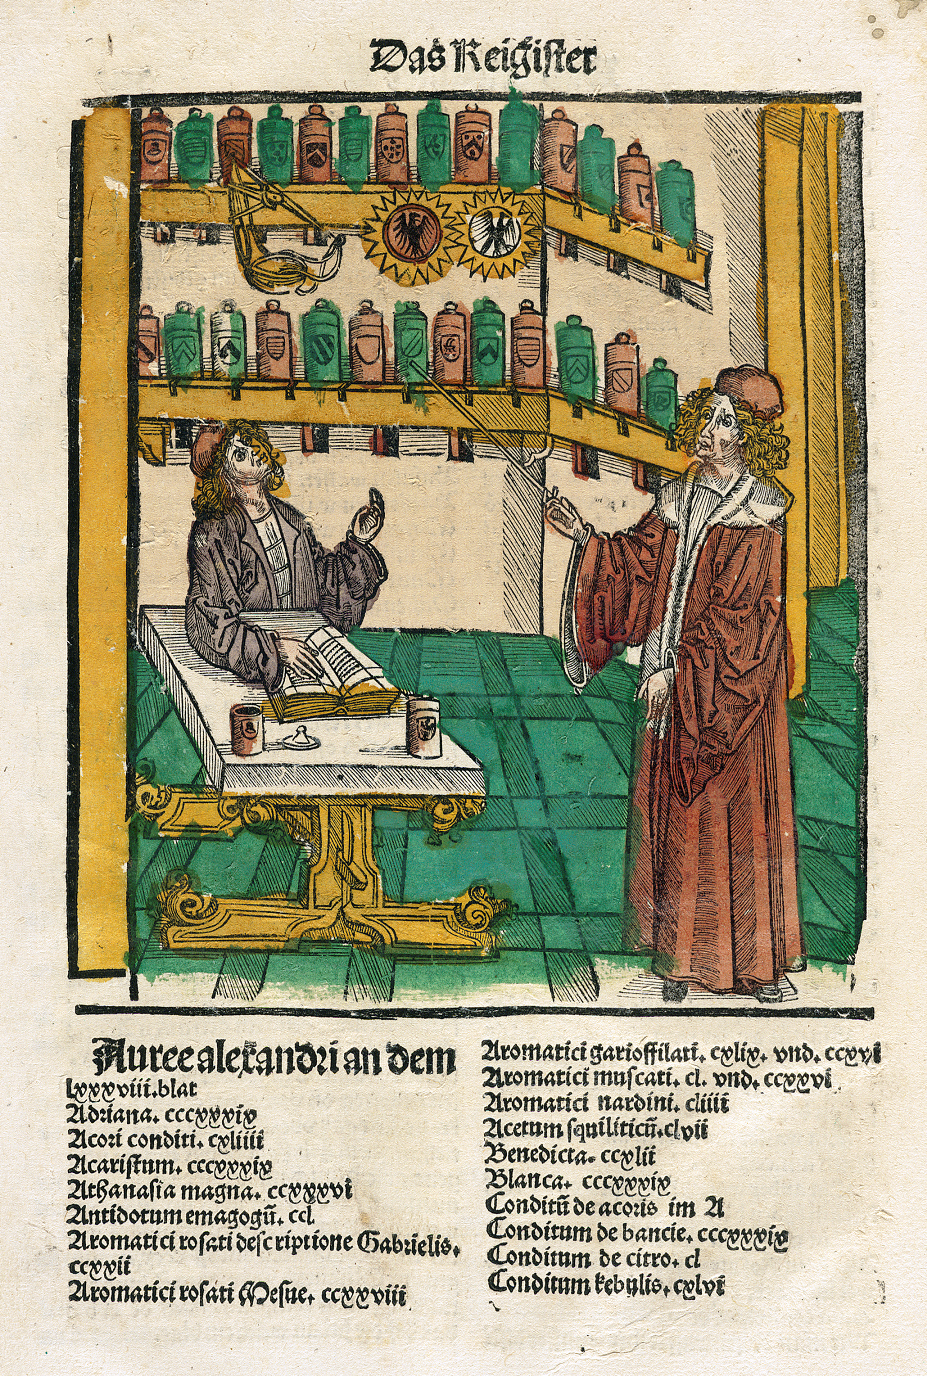 Das Reigister
Auree alexandri an dem
lxxxviii. blat
Adriana. cccxxxix
Acori conditi. cxliiii
Acaristum. cccxxxix
Athanasia magna. ccxxxvi
Antidotum emagogū. ccl
Aromatici rosati desc riptione Gabrielis.
ccxxii
Aromatici rosati Mesue. ccxxviii
Aromatici gariofilati. cxlix. vnd. ccxxvi
Aromatici muscati. cl. vnd. ccxxvi
Aromatici nardini. cliiii
Acetum squiliticū. clvii
Benedicta. ccxlii
Blanca. cccxxxix
Conditū de acoris im A
Conditum de bancie. cccxxxix
Conditum de citro. cl
Conditum kebulis. cxlvi